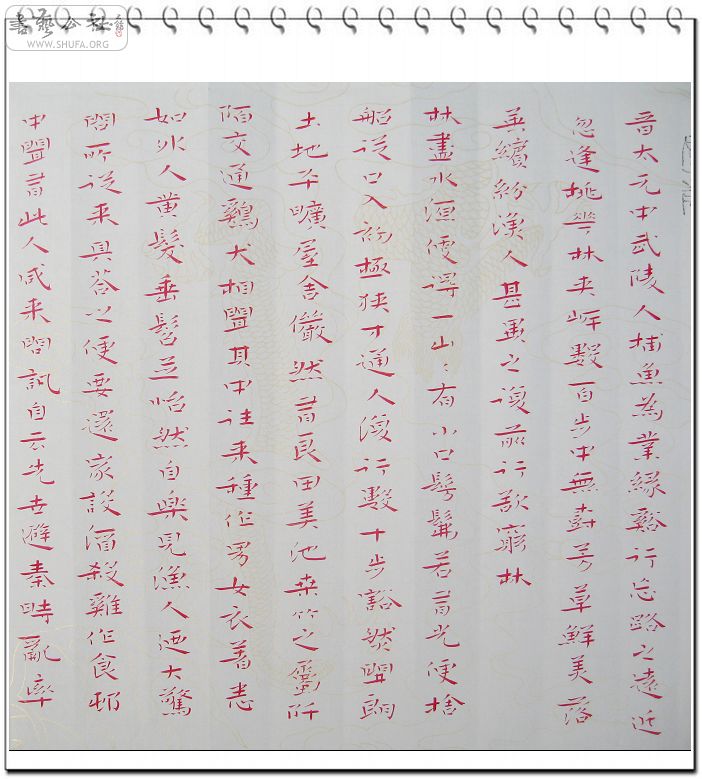 書藝公社
WWW.SHUFA.ORG
晉太元中武陵人捕魚為業緣谿行忘路之遠近
忽逢桃華林夾岸數百步中無芳草鮮美落
英繽紛漁人甚異之復前行欲窮林
林盡水源便得一山〻有小口髣髴若有光便捨
船從口入初極狹才通人復行數十步豁然開朗
土地平曠屋舍儼然有良田美池桑竹之屬阡
陌交通鷄犬相聞其中往来種作男女衣著悉
如外人黃髮垂髫並怡然自樂見漁人迺大驚
問所從来具答之便要還家設酒殺雞作食邨
中聞有此人咸来問訊自云先世避秦時亂率